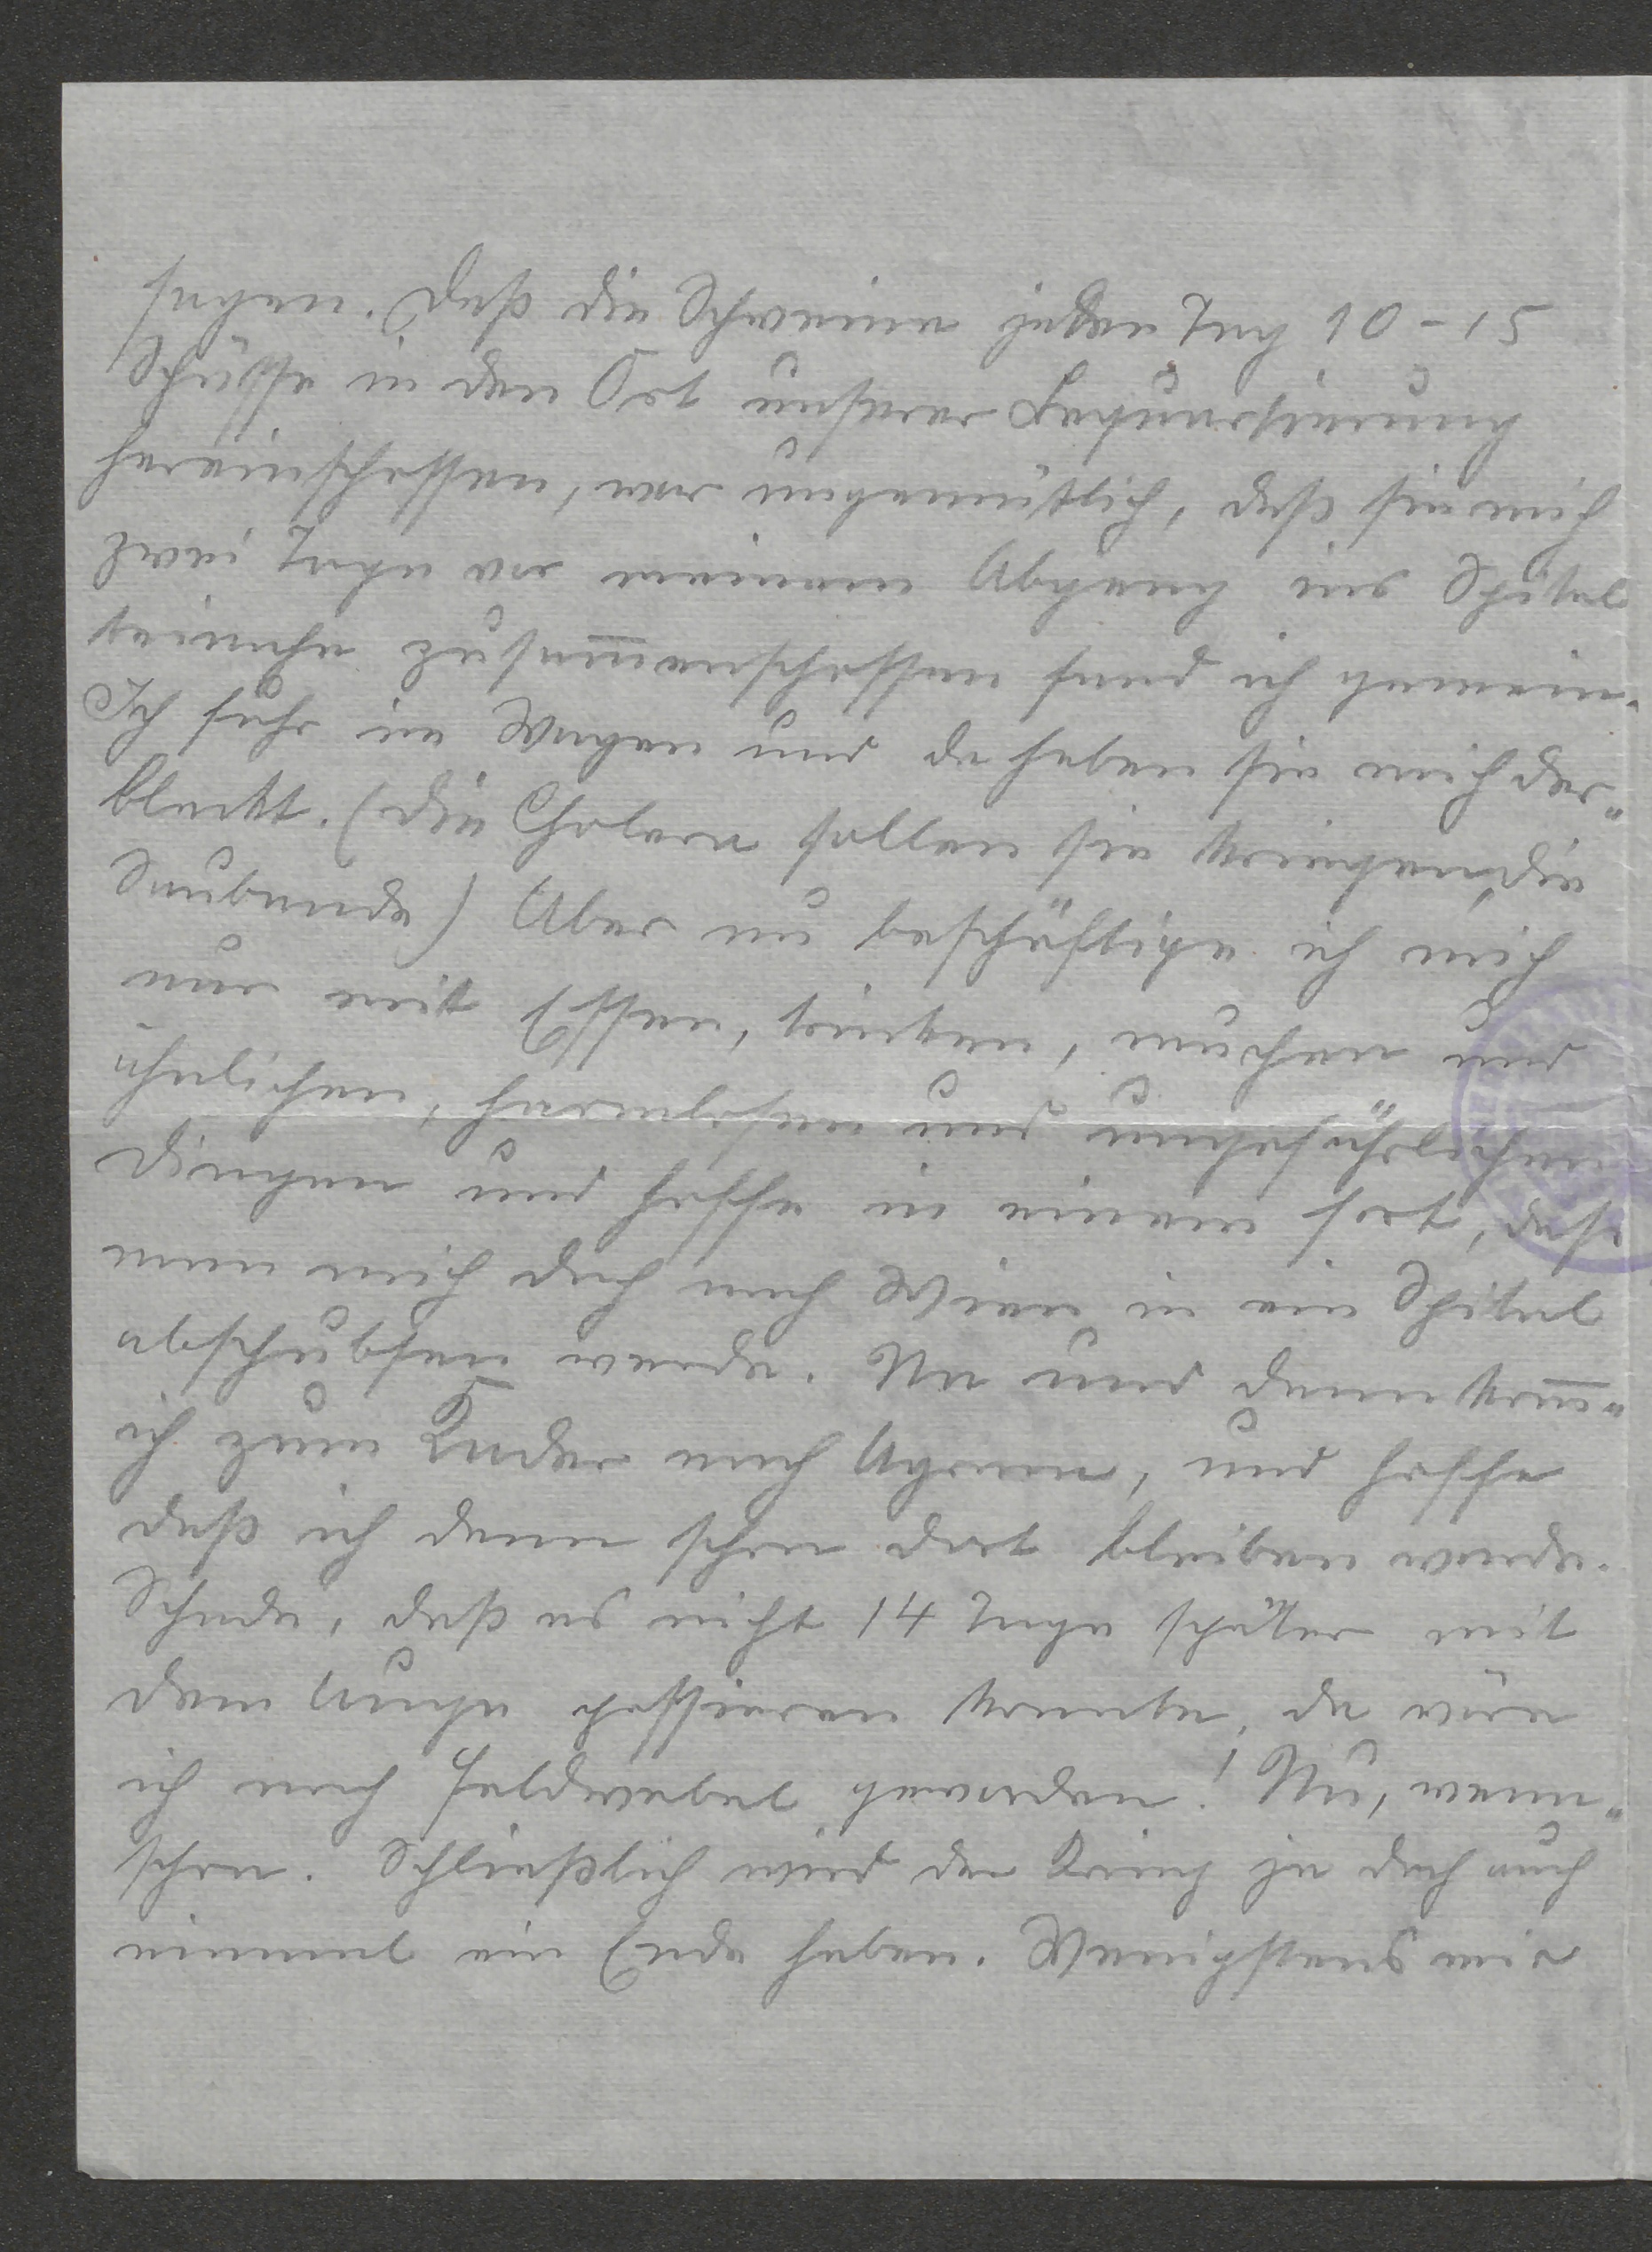 sagen. Daß die Schweine jeden Tag 10-15
Schüsse in den Ort unserer Bequartierung
hereinschossen, war ungemütlich, daß sie mich
zwei Tage vor meinem Abgang ins Spital
beinahe zusam̅enschossen fand ich gemein.
Ich fuhr im Wagen und da haben sie mich der„
bleckt. (Die Cholera sollen sie kriegen, die
Saubande) Aber nu beschäftige ich mich
nur mit Essen, trinken, rauchen und
ähnlichen, harmlosen und ungefährlichen
Dingen und hoffe in einem fort, daß
man mich doch nach Wien in ein Spital
abschubsen werde. Na und dann kom̅„
ich zum Kader nach Agram, und hoffe
daß ich dann schon dort bleiben werde.
Schade, daß es nicht 14 Tage später mit
dem Auge passieren konnte, da wäre
ich noch Feldwebel geworden! Nu, wenn„
schon. Schließlich wird der Krieg ja doch auch
einmal ein Ende haben. Wenigstens wir